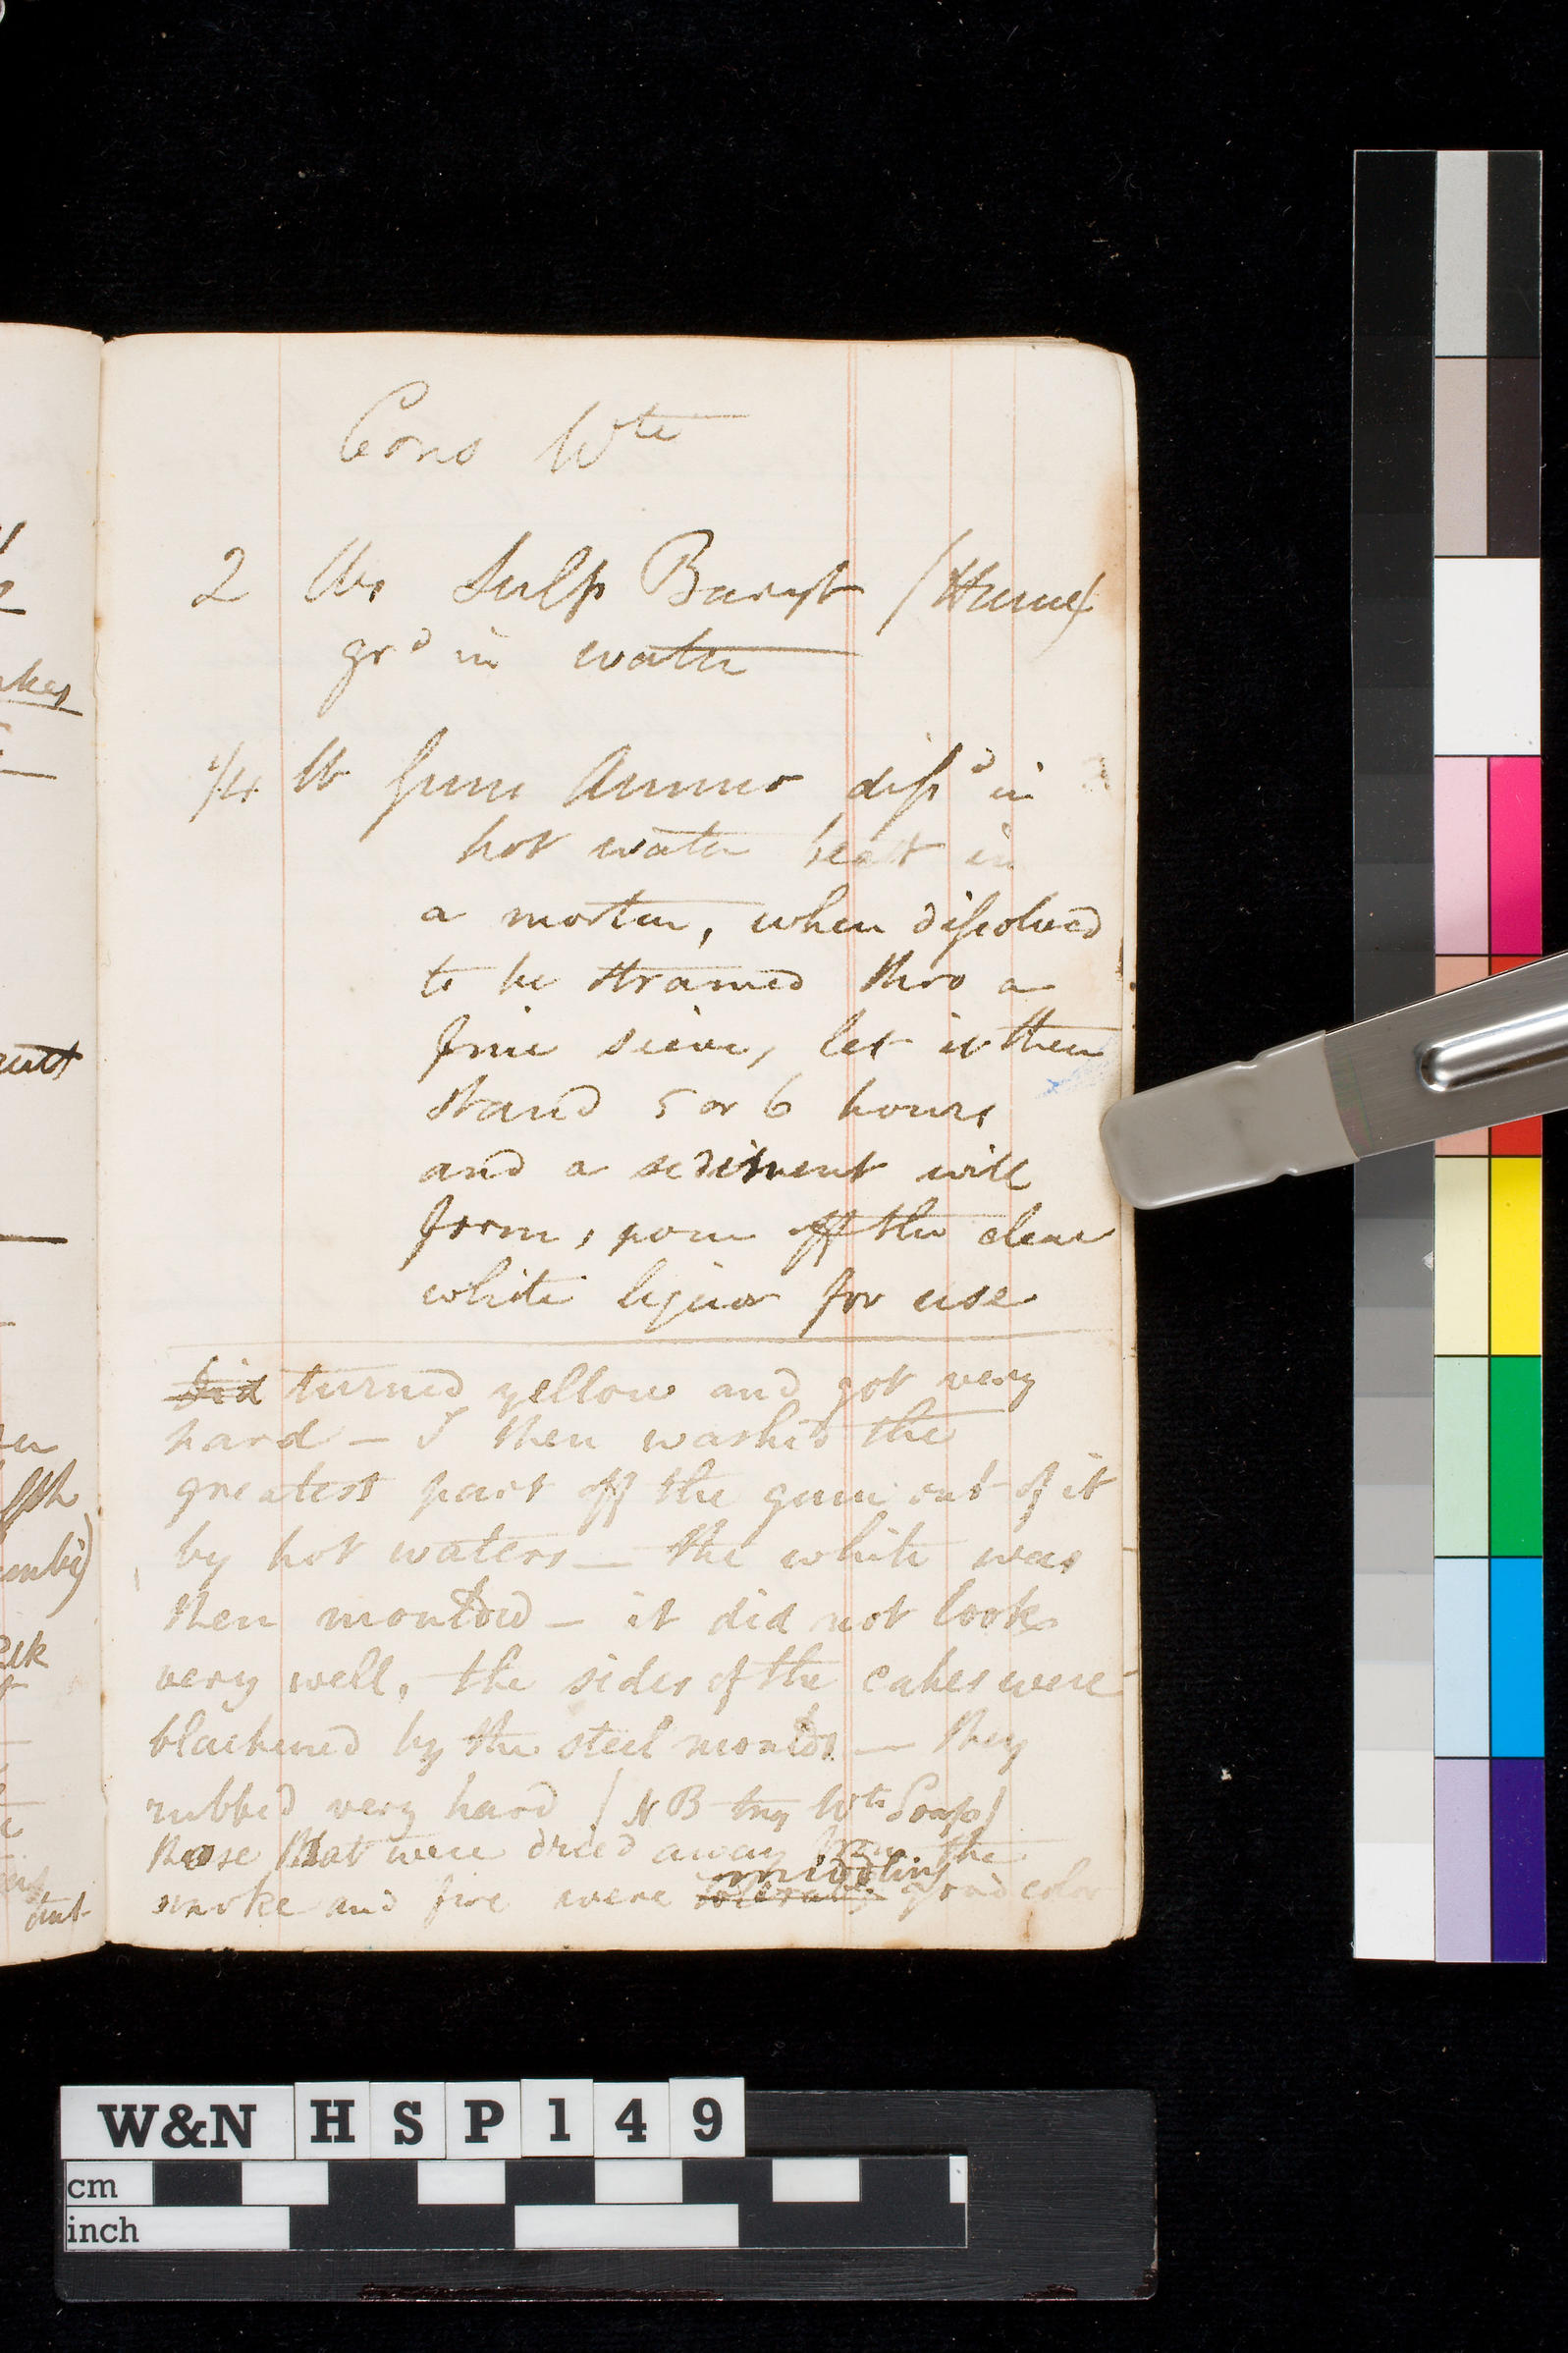 Cons Wte
2 lbs Sulp Baryt (Hume)
grd in water
1/4 lb Gum Ammo dissd in
hot water beatt in
a mortar, when dissolved
to be strained thro a
fine sieve, let it then
stand 5 or 6 hours
and a sediment will
form, pour off the clear
white liquor for use
did turned yellow and got very
hard — I then washed the
greatest part off the gum out of it
by hot waters — the white was
then moulded — it did not look
very well, the sides of the cakes were
blackened by the steel moulds — they
rubbed very hard / NB try Wte Soap /
those that were dried away from the
middling
smoke and fire were tolerably good color
akes
ffth
umbi)
but
W&N HSP149
cm
inch